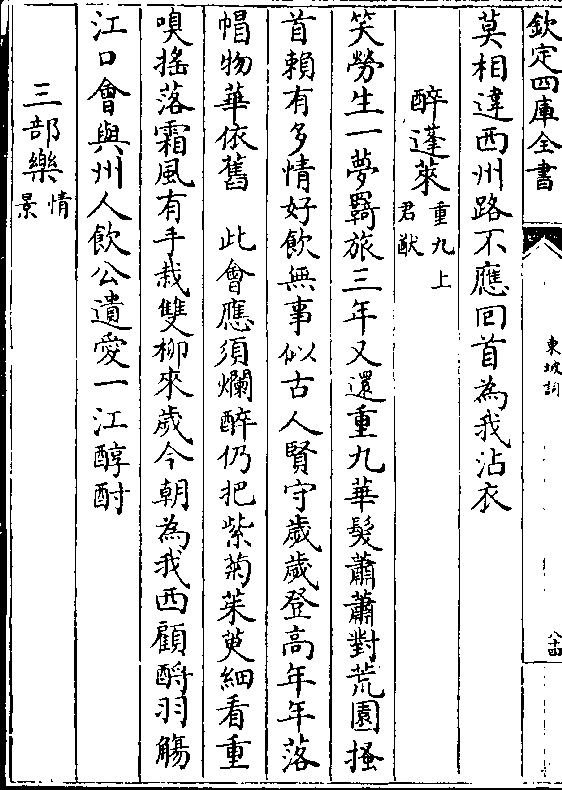 欽定四庫全書
東坡詞
八十四
莫相違西州路不應回首為我沾衣
醉蓬萊重九上君猷
笑勞生一夢羇旅三年又還重九華髮蕭蕭對荒園搔
首賴有多情好飲無事似古人賢守歲歲登高年年落
帽物華依舊 此會應須爛醉仍把紫菊茱萸細看重
嗅搖落霜風有手栽雙柳來歲今朝為我西顧酹羽觴
江口會與州人飲公遺愛一江醇酎
三部樂情景